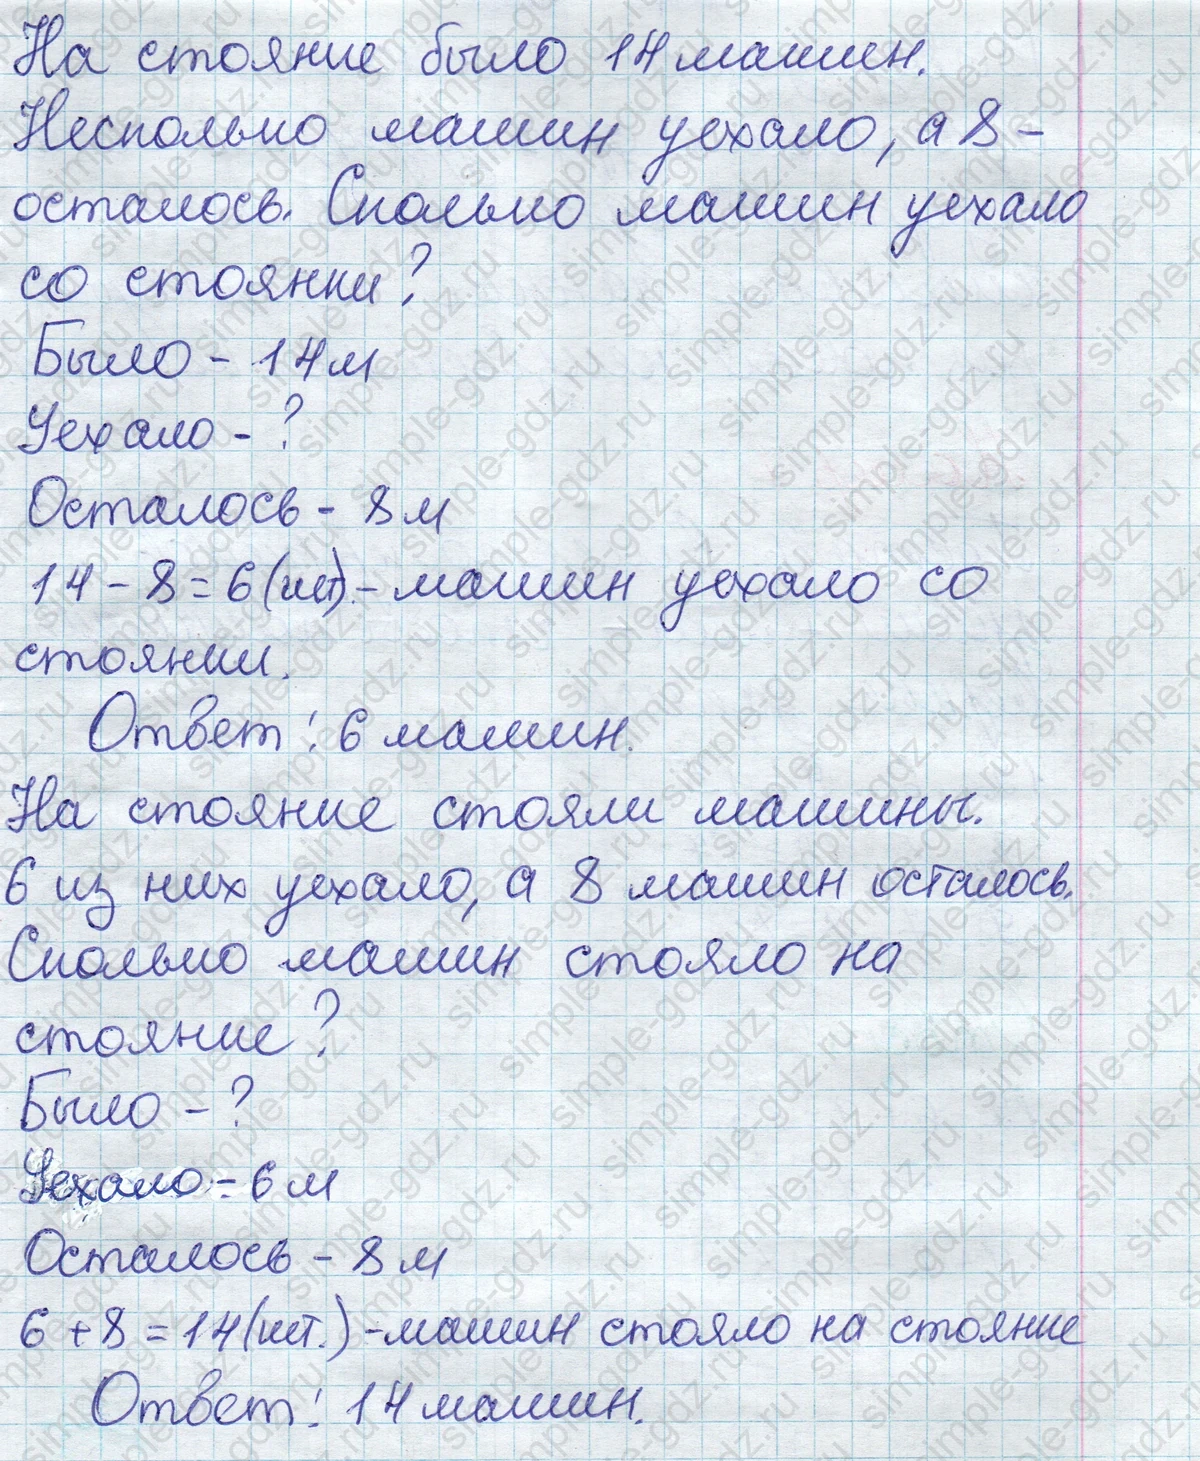 На стоянке было 14 машин.
Несколько машин уехало, а 8 -
осталось. Сколько машин уехало
со стоянки?
Было - 14 м
Уехало - ?
Осталось - 8 м
14 - 8 = 6 (шт). - машин уехало со
стоянки.
Ответ: 6 машин.
На стоянке стояли машины.
6 из них уехало, а 8 машин осталось.
Сколько машин стояло на
стоянке?
Было - ?
Уехало - 6 м
Осталось - 8 м
6 + 8 = 14 (шт.) - машин стояло на стоянке
Ответ: 14 машин.
simple-gdz.ru